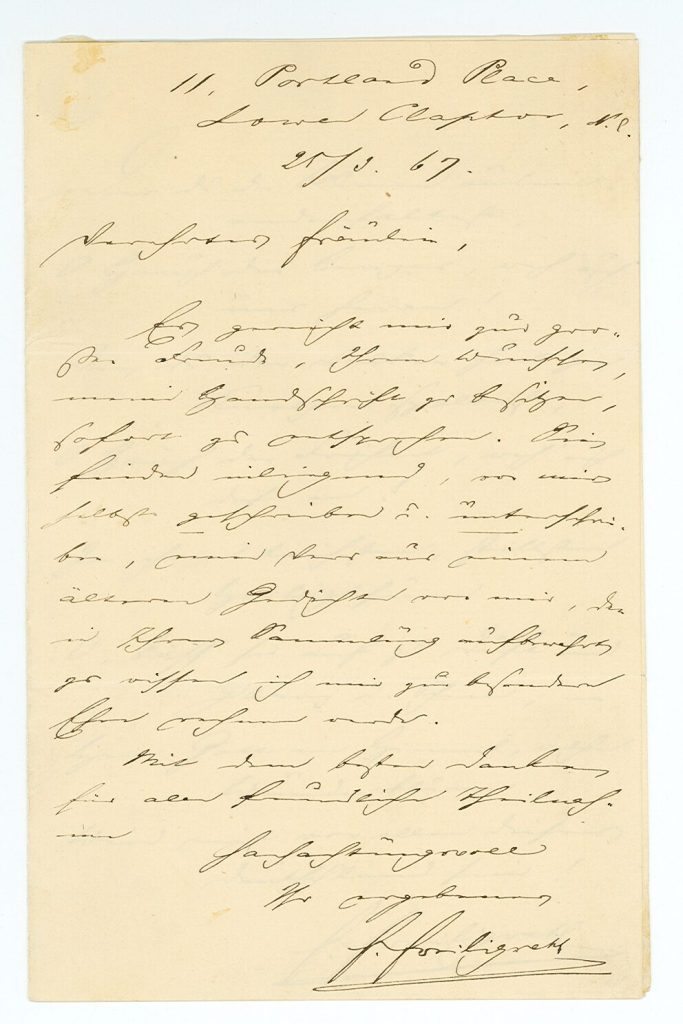 11, Portland Place,
Lower Clapton, N.E.
25/3. 67.
Verehrtes Fräulein,
Es gereicht mir zur gro-
ßen Freude, Ihrem Wunsche,
meine Handschrift zu besitzen,
sofort zu entsprechen. Sie
finden inliegend, von mir
selbst geschrieben u. unterschrie-
ben, einen Vers aus einem
älteren Gedichte von mir, den
in Ihrer Sammlung aufbewahrt
zu wissen ich mir zur besondern
Ehre rechnen werde.
Mit dem besten Danke
für alle freundliche Theilnah-
me
hochachtungsvoll
Ihr ergebener
F. Freiligrath